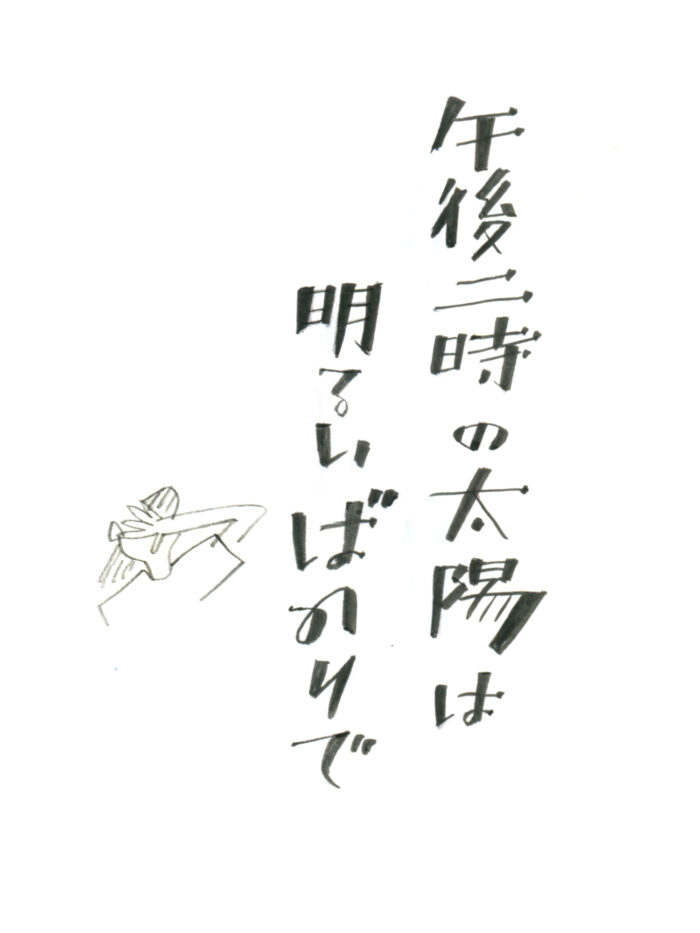 午後二時の太陽は
明るいばかりで